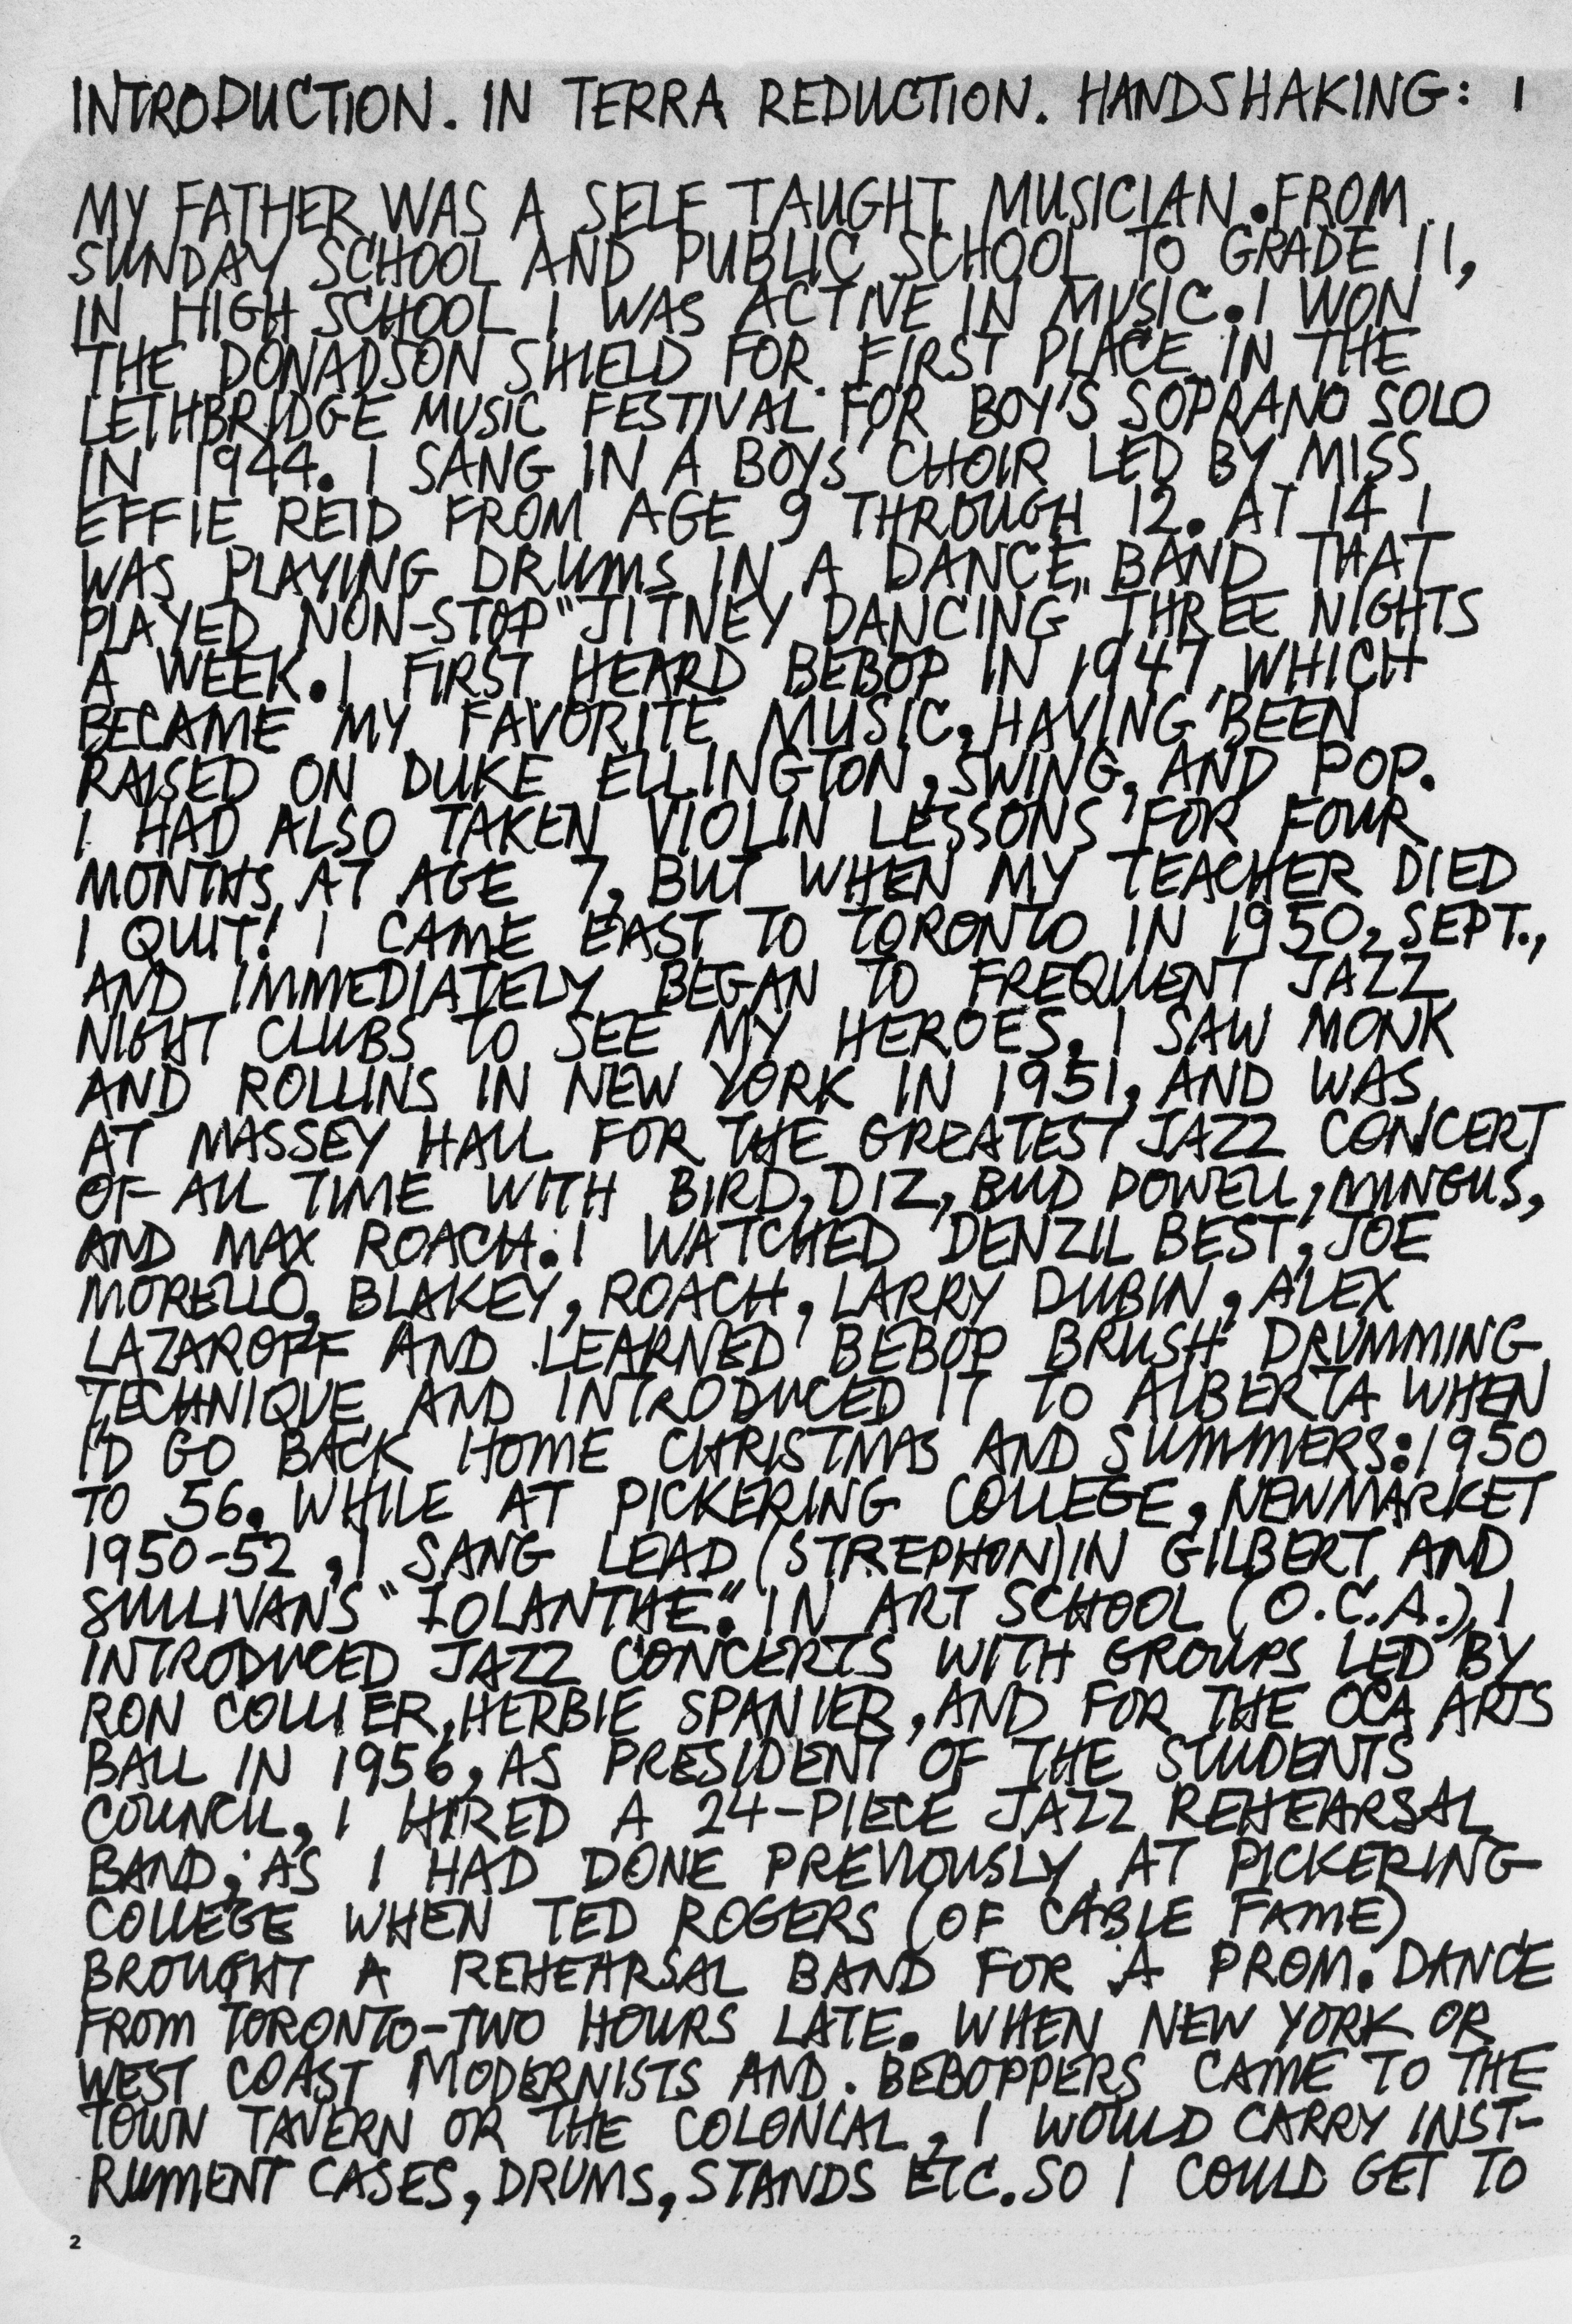 INTRODUCTION. IN TERRA REDUCTION. HANDSHAKING: 1
MY FATHER WAS A SELF TAUGHT MUSICIAN. FROM
SUNDAY SCHOOL AND PUBLIC SCHOOL TO GRADE 11,
IN HIGH SCHOOL I WAS ACTIVE IN MUSIC. I WON
THE DONADSON SHIELD FOR FIRST PLACE IN THE
LETHBRIDGE MUSIC FESTIVAL FOR BOY'S SOPRANO SOLO
IN 1944. I SANG IN A BOYS' CHOIR LED BY MISS
EFFIE REID FROM AGE 9 THROUGH 12. AT 14 I
WAS PLAYING DRUMS IN A DANCE BAND THAT
PLAYED NON-STOP "JITNEY DANCING" THREE NIGHTS
A WEEK. I FIRST HEARD BEBOP IN 1947, WHICH
BECAME MY FAVORITE MUSIC, HAVING BEEN
RAISED ON DUKE ELLINGTON, SWING, AND POP.
I HAD ALSO TAKEN VIOLIN LESSONS FOR FOUR
MONTHS AT AGE 7, BUT WHEN MY TEACHER DIED
I QUIT! I CAME EAST TO TORONTO IN 1950, SEPT.,
AND IMMEDIATELY BEGAN TO FREQUENT JAZZ
NIGHT CLUBS TO SEE MY HEROES. I SAW MONK
AND ROLLINS IN NEW YORK IN 1951, AND WAS
AT MASSEY HALL FOR THE GREATEST JAZZ CONCERT
OF ALL TIME WITH BIRD, DIZ, BUD POWELL, MINGUS,
AND MAX ROACH. I WATCHED DENZIL BEST, JOE
MORELLO, BLAKEY, ROACH, LARRY DUBIN, ALEX
LAZAROFF AND LEARNED BEBOP BRUSH DRUMMING
TECHNIQUE AND INTRODUCED IT TO ALBERTA WHEN
I'D GO BACK HOME CHRISTMAS AND SUMMERS: 1950
TO 56. WHILE AT PICKERING COLLEGE, NEWMARKET
1950-52, I SANG LEAD (STREPHON) IN GILBERT AND
SULLIVANS "IOLANTHE". IN ART SCHOOL (O.C.A.), I
INTRODUCED JAZZ CONCERTS WITH GROUPS LED BY
RON COLLIER, HERBIE SPANIER, AND FOR THE OCA ARTS
BALL IN 1956, AS PRESIDENT OF THE STUDENTS
COUNCIL, I HIRED A 24-PIECE JAZZ REHEARSAL
BAND; AS I HAD DONE PREVIOUSLY AT PICKERING
COLLEGE WHEN TED ROGERS (OF CABLE FAME)
BROUGHT A REHEARSAL BAND FOR A PROM. DANCE
FROM TORONTO-TWO HOURS LATE. WHEN NEW YORK OR
WEST COAST MODERNISTS AND BEBOPPERS CAME TO THE
TOWN TAVERN OR THE COLONIAL, I WOULD CARRY INST-
RUMENT CASES, DRUMS, STANDS ETC. SO I COULD GET TO
2